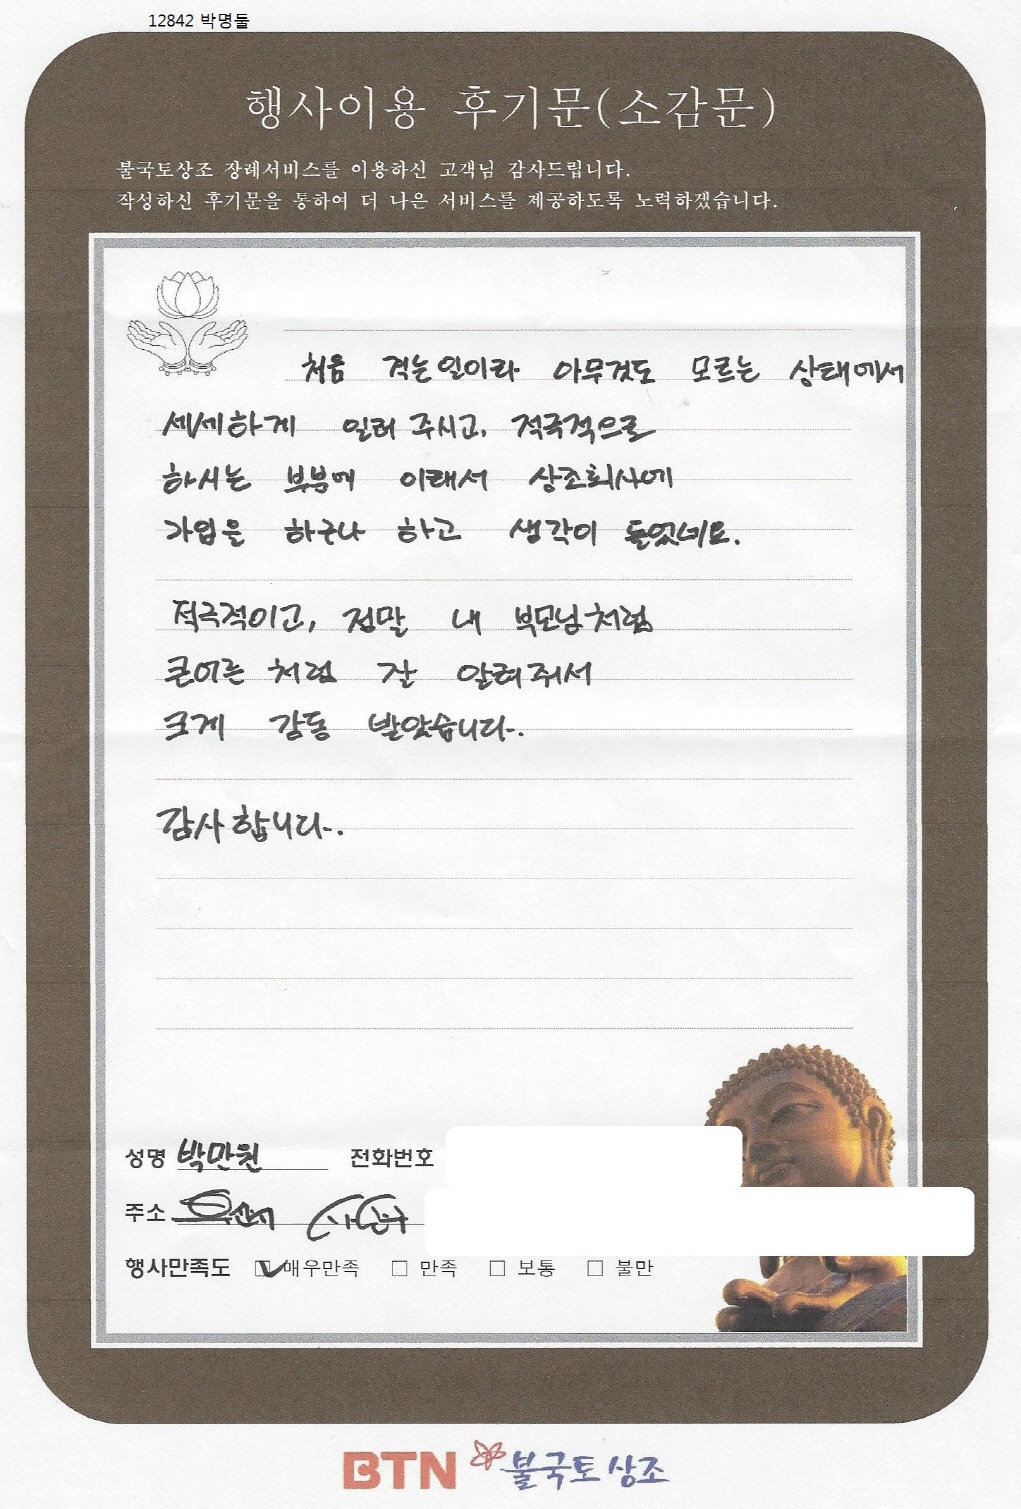 12842 박명둘
행사이용 후기문(소감문)
불국토상조 장례서비스를 이용하신 고객님 감사드립니다.
작성하신 후기문을 통하여 더 나은 서비스를 제공하도록 노력하겠습니다.
처음 겪는일이라 아무것도 모르는 상태에서
세세하게 일러 주시고, 적극적으로
하시는 부분에 이래서 상조회사에
가입을 하는구나 하고 생각이 들었네요.
적극적이고, 정말 내 부모님처럼
큰어른 처럼 잘 알려줘서
크게 감동 받았습니다.
감사합니다.
성명 박만원 전화번호
주소
행사만족도 매우만족 만족 보통 불만
BTN 불국토상조